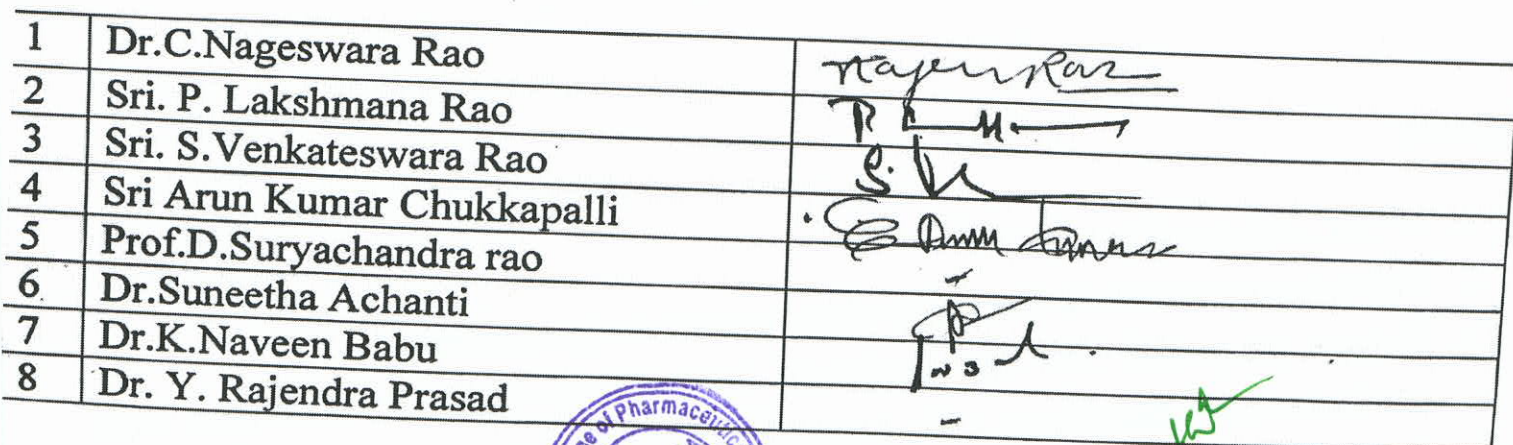 1 Dr.C.Nageswara Rao
2 Sri. P. Lakshmana Rao
3 Sri. S.Venkateswara Rao
4 Sri Arun Kumar Chukkapalli
5 Prof.D.Suryachandra rao -
6 Dr.Suneetha Achanti
7 Dr.K.Naveen Babu
8 Dr. Y. Rajendra Prasad -
of Pharmaceutic